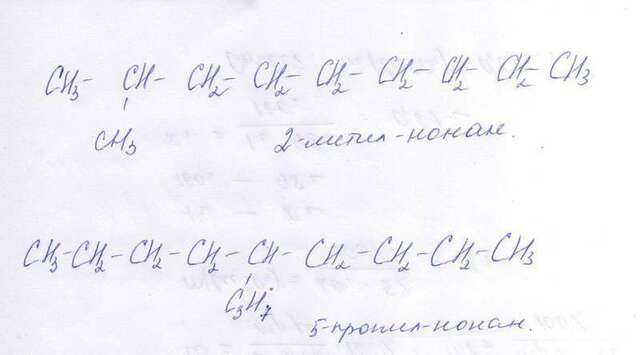 CH₃- CH- CH₂- CH₂- CH₂- CH₂- CH₂- CH₂- CH₃
CH₃
2-метил-нонан.
CH₃-CH₂-CH₂-CH₂-CH-CH₂-CH₂-CH₂-CH₃
C₃H₇
5-пропил-нонан.